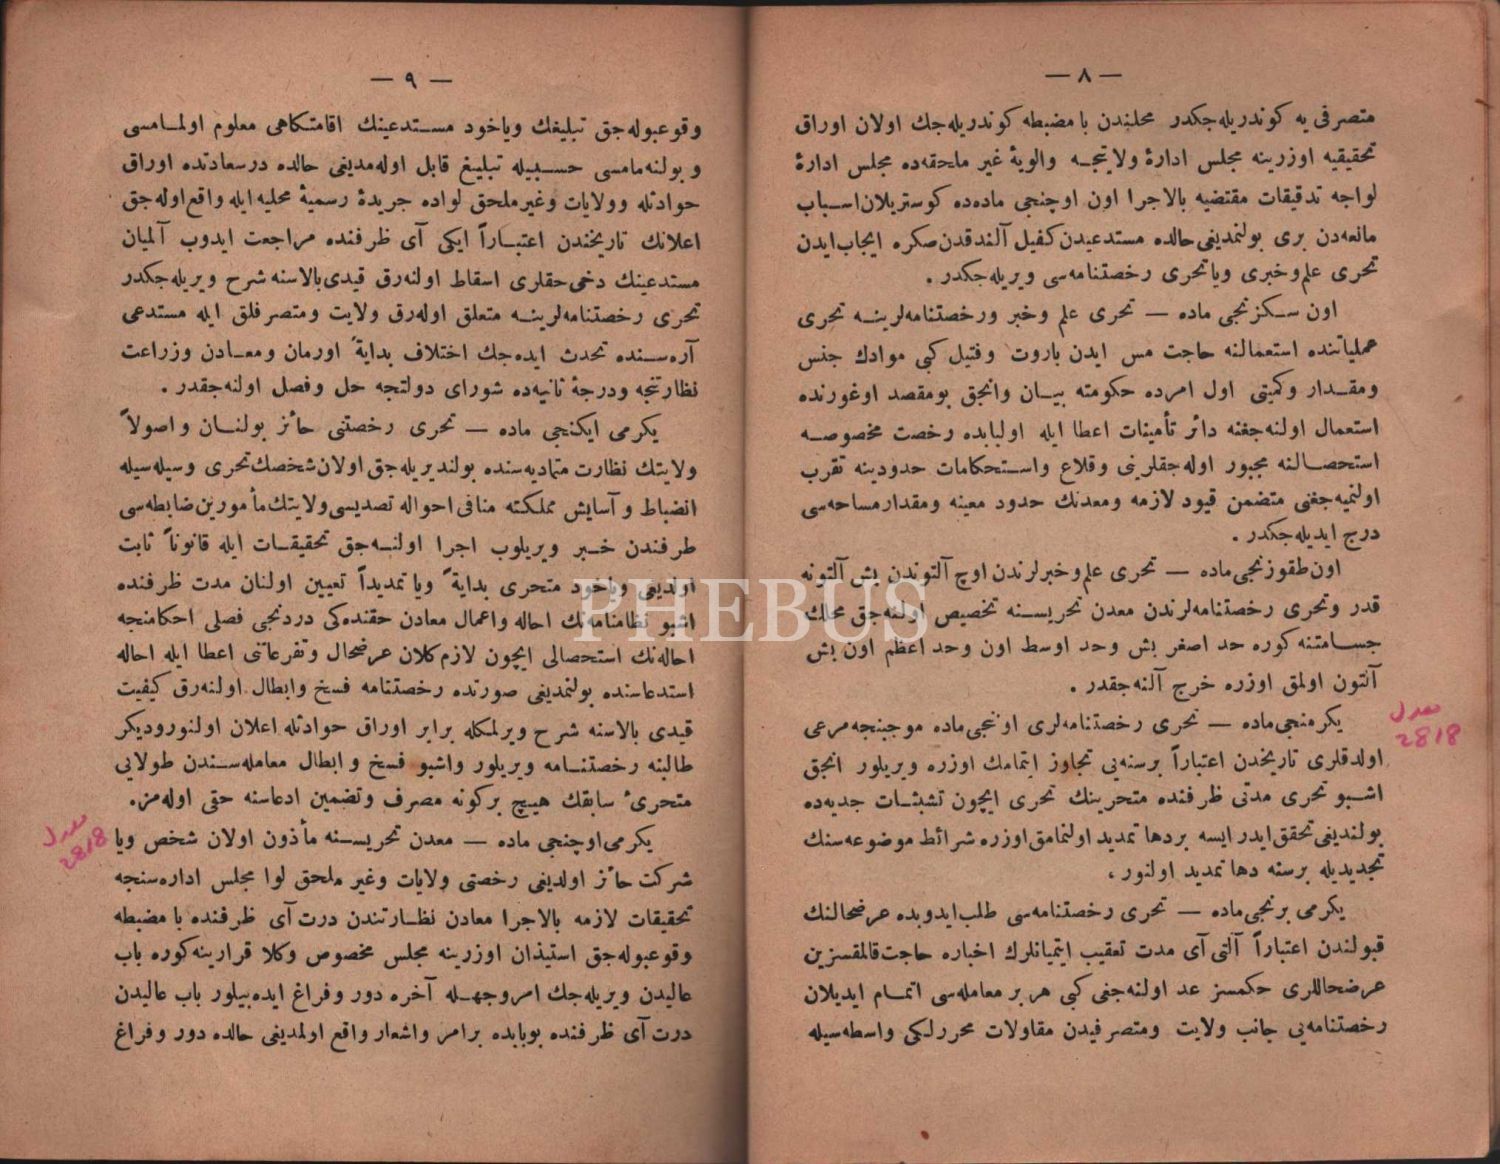 — ٨ —
متصرفی یه کوندریله‌جکدر محلندن با مضبطه کوندریله‌جك اولان اوراق
تحقیقیه اوزرینه مجلس ادارهٔ ولایتجه والویهٔ غیر ملحقه‌ده مجلس ادارهٔ
لواجه تدقیقات مقتضیه بالاجرا اون اوچنجی ماده‌ده کوستریلان اسباب
مانعه‌دن بری بولنمدیغی حالده مستدعیدن کفیل آلندقدن صکره ایجاب ایدن
تحری علم وخبری ویا تحری رخصتنامه‌سی ویریله‌جکدر .
اون سکزنجی ماده — تحری علم وخبر ورخصتنامه‌لرینه تحری
عملیاتنده استعمالنه حاجت مس ایدن باروت وفتیل کبی موادك جنس
ومقدار وکمیتی اول امرده حکومته بیان وانجق بو مقصد اوغورنده
استعمال اولنه‌جغنه دائر تأمینات اعطا ایله اولبابده رخصت مخصوصه
استحصالنه مجبور اوله‌جقلرینی وقلاع واستحکامات حدودینه تقرب
اولنمیه‌جغنی متضمن قیود لازمه ومعدنك حدود معینه ومقدار مساحه‌سی
درج ایدیله‌جکدر .
اون طقوزنجی ماده — تحری علم وخبرلرندن اوچ آلتوندن بش آلتونه
قدر وتحری رخصتنامه‌لرندن معدن تحریسنه تخصیص اولنه‌جق محلك
جسامتنه کوره حد اصغر بش وحد اوسط اون وحد اعظم اون بش
آلتون اولمق اوزره خرج آلنه‌جقدر .
یکرمنجی ماده — تحری رخصتنامه‌لری اونجی ماده موجبنجه مرعی
اولدقلری تاریخدن اعتباراً برسنه‌یی تجاوز ایتمامك اوزره ویریلور انجق
اشبو تحری مدتی ظرفنده متحرینك تحری ایچون تشبثات جدیه‌ده
بولندیغی تحقق ایدر ایسه بردها تمدید اولنمامق اوزره شرائط موضوعه‌سنك
تجدیدیله برسنه دها تمدید اولنور .
یکرمی برنجی ماده — تحری رخصتنامه‌سی طلب ایدوبده عرضحالنك
قبولندن اعتباراً آلتی آی مدت تعقیب ایتمیانلرك اخباره حاجت قالمقسزین
عرضحاللری حکمسز عد اولنه‌جغی کبی هر بر معامله‌سی اتمام ایدیلان
رخصتنامه‌یی جانب ولایت ومتصرفیدن مقاولات محررلکی واسطه‌سیله
معدل
2818
— ٩ —
وقوعبوله‌جق تبلیغك ویاخود مستدعینك اقامتکاهی معلوم اولمامسی
وبولنه‌مامسی حسبیله تبلیغ قابل اوله‌مدیغی حالده درسعادتده اوراق
حوادثله وولایات وغیر ملحق لواده جریدهٔ رسمیهٔ محلیه ایله واقع اوله‌جق
اعلانك تاریخندن اعتباراً ایکی آی ظرفنده مراجعت ایدوب آلمیان
مستدعینك دخی حقلری اسقاط اولنه‌رق قیدی بالاسنه شرح ویریله‌جکدر
تحری رخصتنامه‌لرینه متعلق اوله‌رق ولایت ومتصرفلق ایله مستدعی
آره‌سنده تحدث ایده‌جك اختلاف بدایةً اورمان ومعادن وزراعت
نظارتنجه ودرجهٔ ثانیه‌ده شورای دولتجه حل وفصل اولنه‌جقدر .
یکرمی ایکنجی ماده — تحری رخصتنی حائز بولنان واصولاً
ولایتك نظارت متمادیه‌سنده بولندیریله‌جق اولان شخصك تحری وسیله‌سیله
انضباط وآسایش مملکته منافی احواله تصدیسی ولایتك مأمورین ضابطه‌سی
طرفندن خبر ویریلوب اجرا اولنه‌جق تحقیقات ایله قانوناً ثابت
اولدیغی ویاخود متحری بدایةً ویا تمدیداً تعیین اولنان مدت ظرفنده
اشبو نظامنامه‌نك احاله واعمال معادن حقنده‌کی دردنجی فصلی احکامنجه
احاله‌نك استحصالی ایچون لازم کلان عرضحال وتفرعاتنی اعطا ایله احاله
استدعاسنده بولنمدیغی صورتده رخصتنامه فسخ وابطال اولنه‌رق کیفیت
قیدی بالاسنه شرح ویرلمکله برابر اوراق حوادثله اعلان اولنور ودیکر
طالبنه رخصتنامه ویریلور واشبو فسخ وابطال معامله‌سندن طولایی
متحریٔ سابقك هیچ برکونه مصرف وتضمین ادعاسنه حقی اوله‌مز .
یکرمی اوچنجی ماده — معدن تحریسنه مأذون اولان شخص ویا
شرکت حائز اولدیغی رخصتی ولایات وغیر ملحق لوا مجلس اداره‌سنجه
تحقیقات لازمه بالاجرا معادن نظارتندن درت آی ظرفنده با مضبطه
وقوعبوله‌جق استیذان اوزرینه مجلس مخصوص وکلا قرارینه کوره باب
عالیدن ویریله‌جك امر وجهله آخره دور وفراغ ایده‌بیلور باب عالیدن
درت آی ظرفنده بوبابده برامر واشعار واقع اولمدیغی حالده دور وفراغ
معدل
2818
PHEBUS